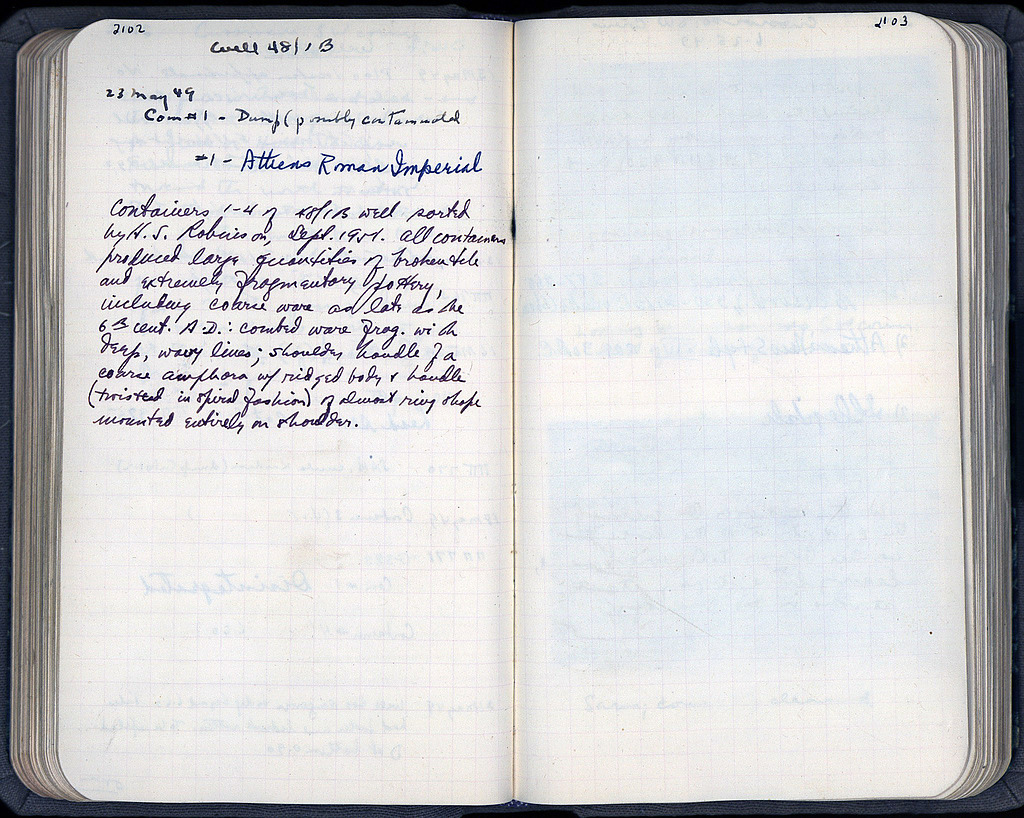 2102
Well 48/1 B
23 May 49
Con #1 - Dump (possibly contaminated
#1 - Athens Roman Imperial
Containers 1-4 of 48/1B well sorted
by H. S. Robinson, Sept. 1951. All containers
produced large quantities of broken tile
and extremely fragmentary pottery,
including coarse ware as late as the
6th cent. A.D.: combed ware frag. with
deep, wavy lines; shoulder handle of a
coarse amphora w/ ridged body & handle
(twisted in spiral fashion) of almost ring shape
mounted entirely on shoulder.
2103